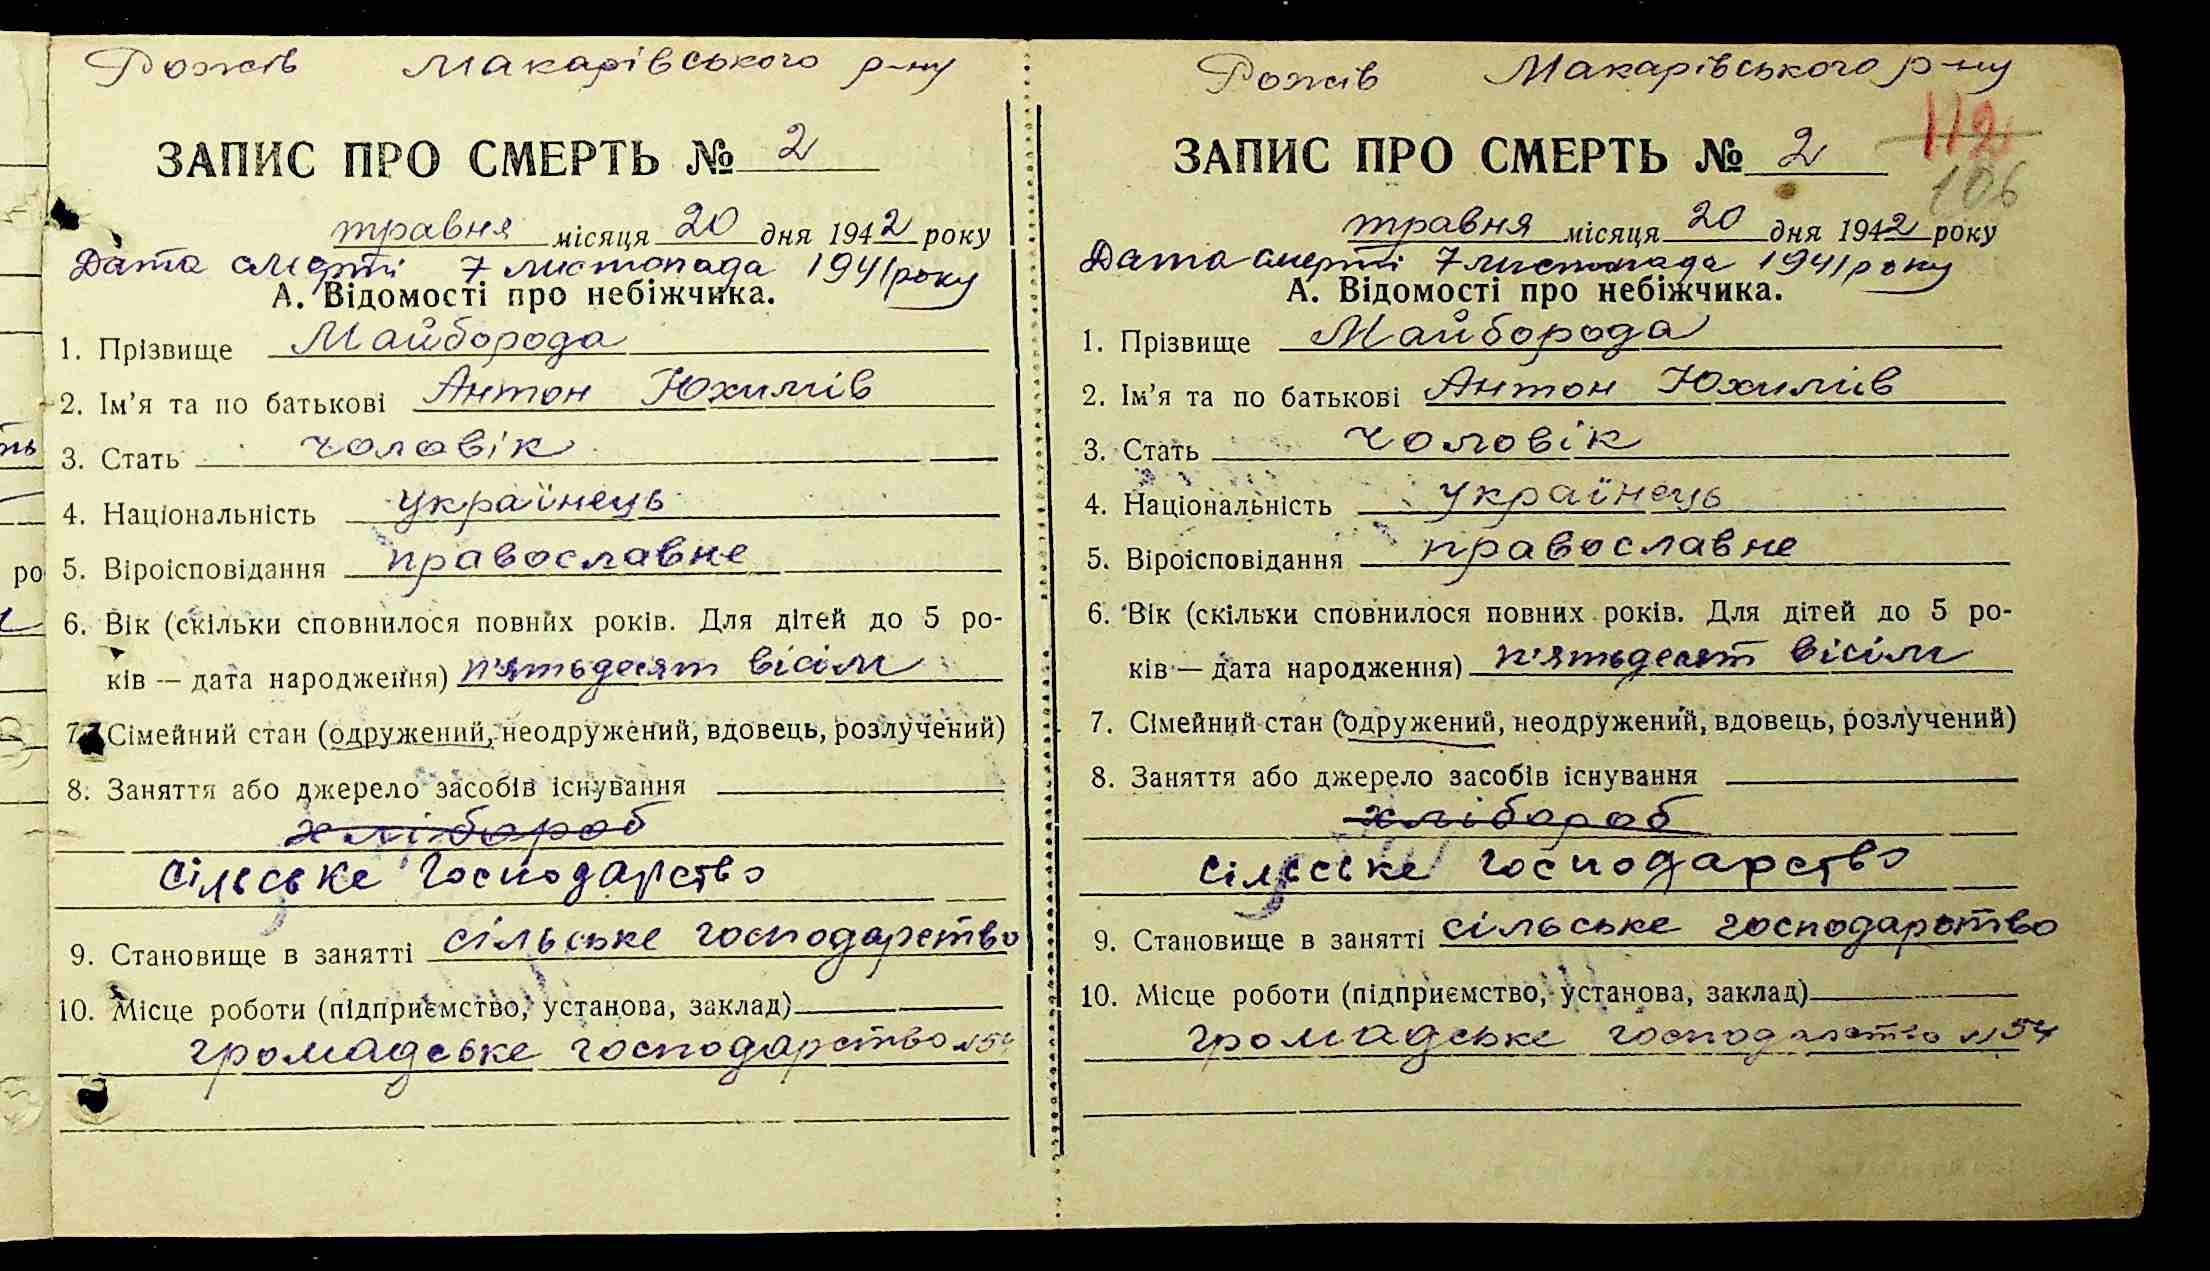 Рожів Макарівського р-ну
ЗАПИС ПРО СМЕРТЬ № 2
травня місяця 20 дня 1942 року
Дата смерті 7 листопада 1941 року
А. Відомості про небіжчика.
1. Прізвище Майборода
2. Ім’я та по батькові Антон Юхимів
3. Стать чоловік
4. Національність українець
5. Віроісповідання православне
6. Вік (скільки сповнилося повних років. Для дітей до 5 ро-
ків — дата народження) п'ятьдесят вісім
7. Сімейний стан (одружений, неодружений, вдовець, розлучений)
8. Заняття або джерело засобів існування
хлібороб
сільське господарство
9. Становище в занятті сільське господарство
10. Місце роботи (підприємство, установа, заклад)
громадське господарство №54
ть
ро
Рожів Макарівського р-ну
112
ЗАПИС ПРО СМЕРТЬ № 2
106
травня місяця 20 дня 1942 року
Дата смерті 7 листопада 1941 року
А. Відомості про небіжчика.
1. Прізвище Майборода
2. Ім’я та по батькові Антон Юхимів
3. Стать чоловік
4. Національність українець
5. Віроісповідання православне
6. Вік (скільки сповнилося повних років. Для дітей до 5 ро-
ків — дата народження) п'ятьдесят вісім
7. Сімейний стан (одружений, неодружений, вдовець, розлучений)
8. Заняття або джерело засобів існування
хлібороб
сільське господарство
9. Становище в занятті сільське господарство
10. Місце роботи (підприємство, установа, заклад)
громадське господарство №54